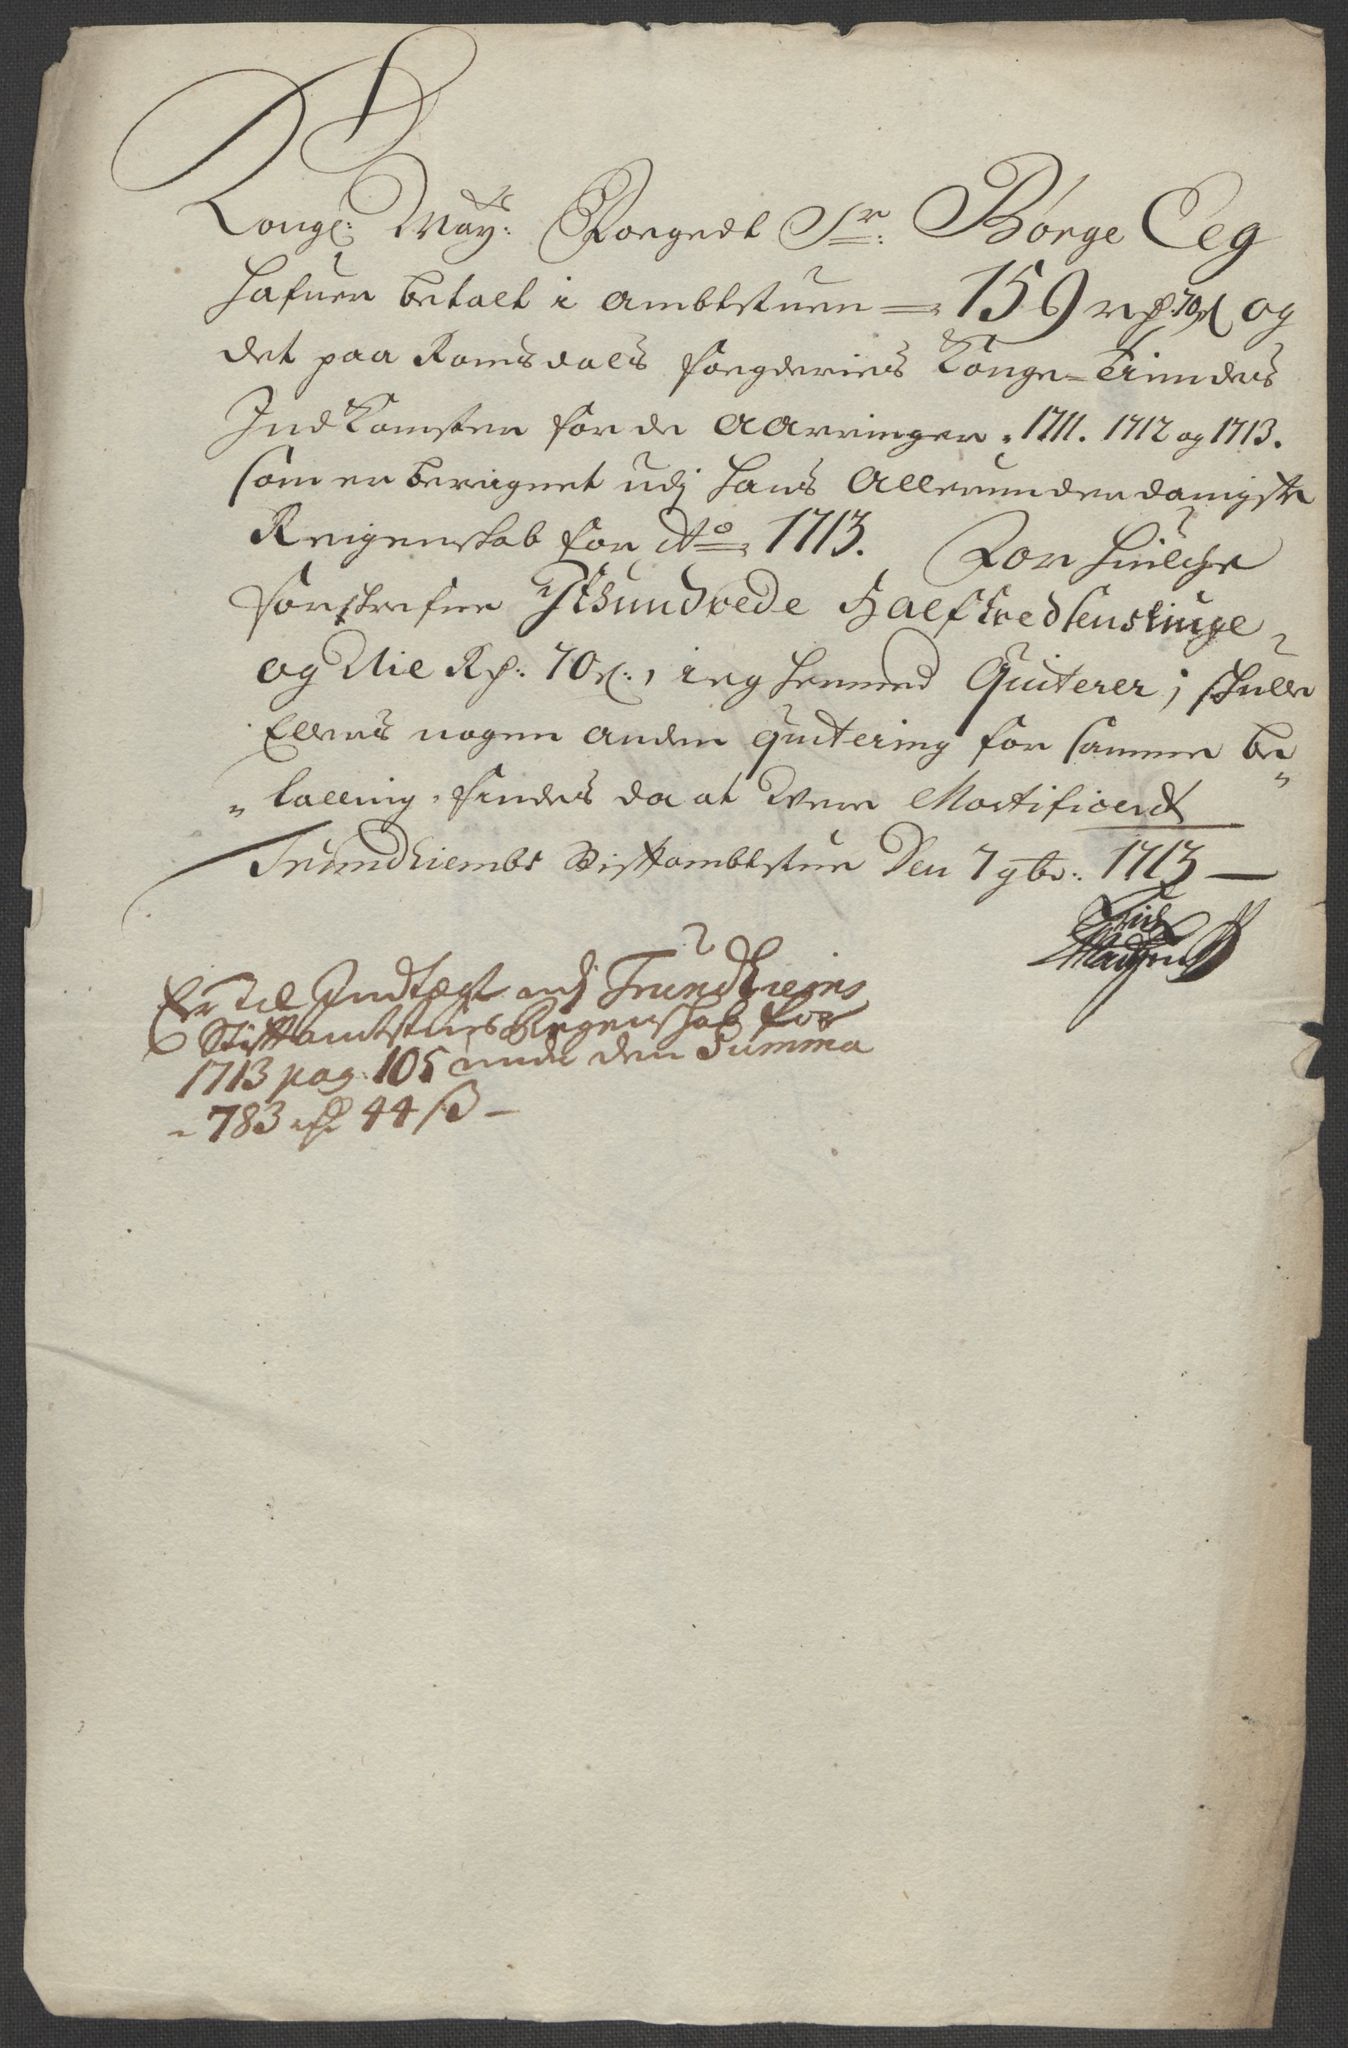 Kongl: May:ts Foegedt Sr: Børge Eeg
hafuer betalt i ambtstuen 159 rd 70 s og
det paa Romsdals fogderies Konge-Tiendes
Indkomster for de aaeringer 1711. 1712 og 1713.
som er beregnet udj hans allerunderdanigste
Reigenskab for Ao 1713. For huilche
forskrefne Et Hundrede Halftredsenstiuge
og Nie Rd: 70 s:, ieg hermed Quiterer; skulle
Ellers nogen anden quitering for samme be
talling findes da at were Mortificerdt
Trundhiembs Stiftambtstue Den 7 9br: 1713
Er til Indtægt udj Trundhiems
Stiftamtstues Regenskab for
1713 pag: 105 under den Summa
783 rd 44 s